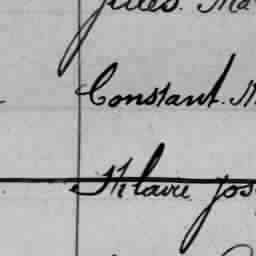 Jules. Ma
Constant. M
Hilaire Jos